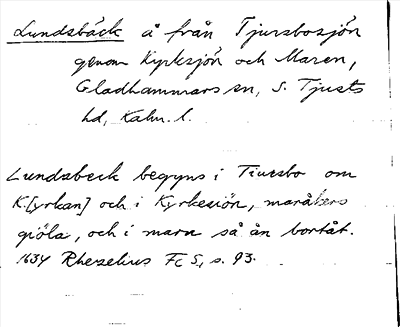 Lundsbäck å från Tjursbosjön
genom Kyrksjön och Maren,
Gladhammars sn, S. Tjusts
hd, Kalm. l.
Lundsbeck begyns i Tiursbo om
K.[yrkan] och i Kyrkesiön, maråkers
giöla, och i marn så ån bortåt.
1634 Rhezelius Fc 5, s. 93.